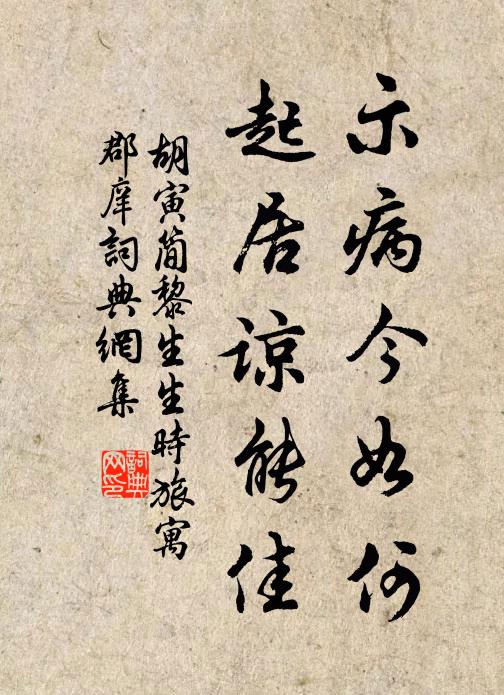 示病今如何
起居谅能佳
胡寅簡黎生生時旅寓
郡庠詞典網集
詞典
网印